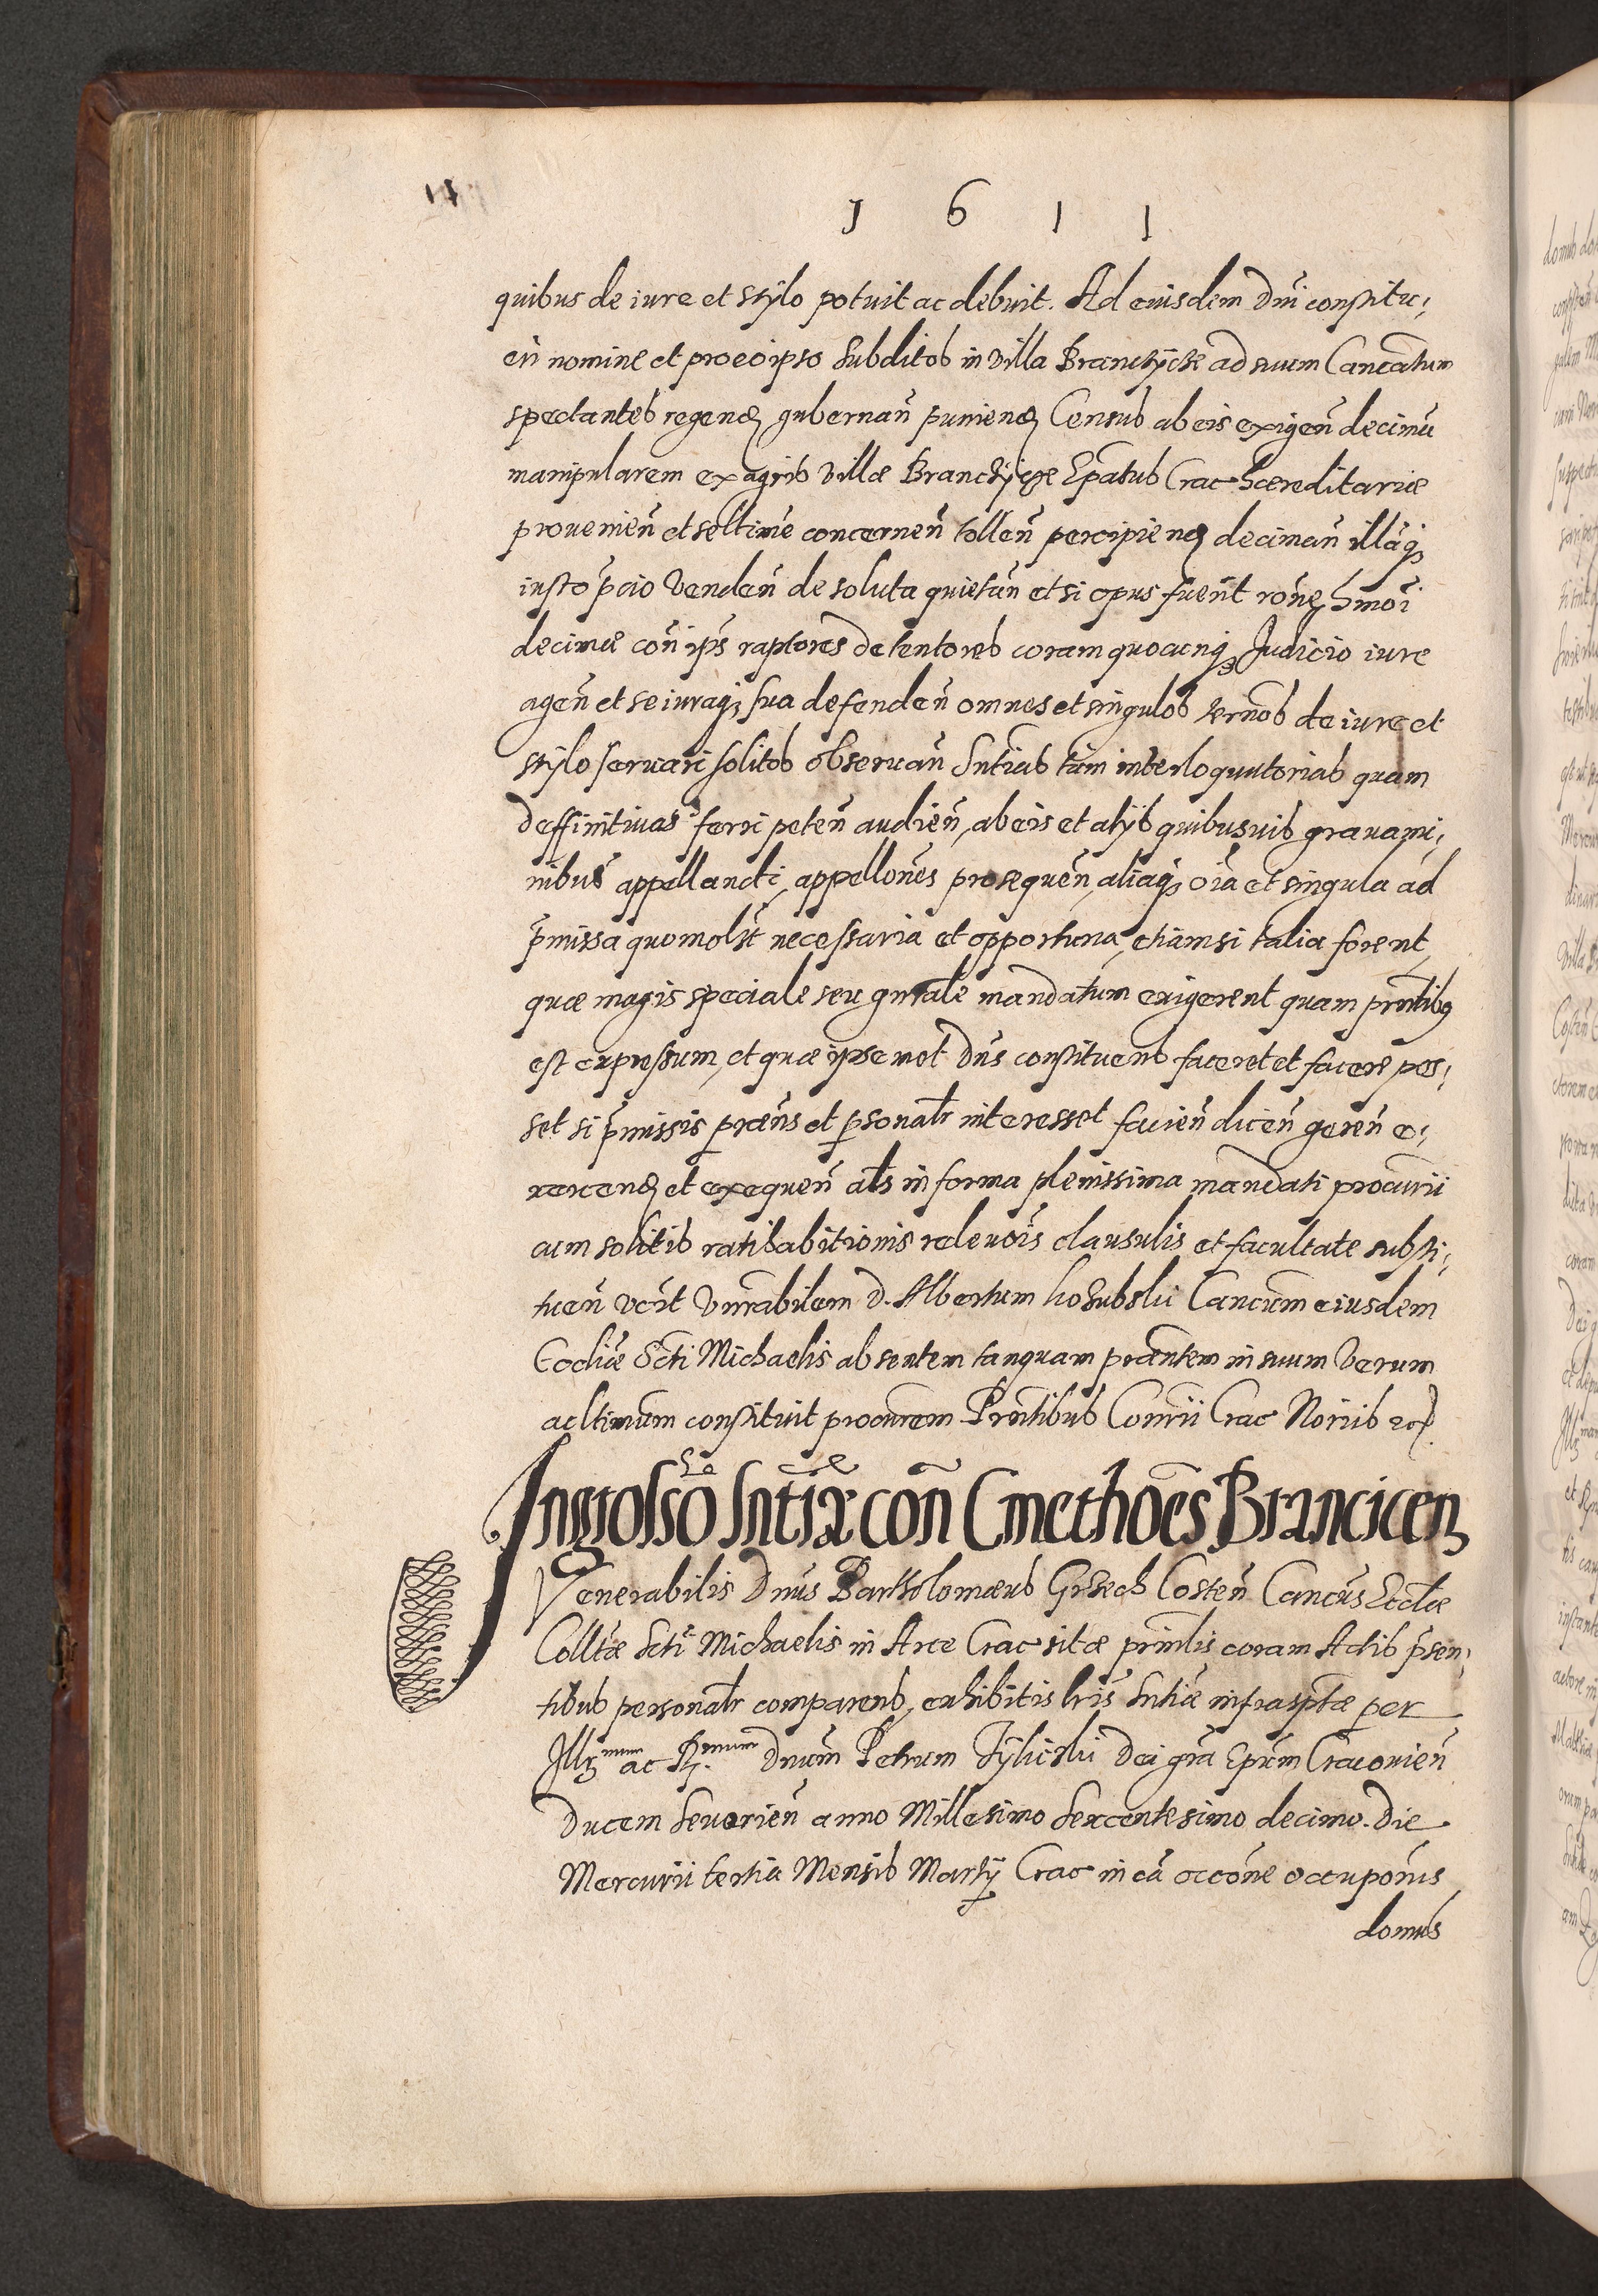 1 6 1 1
quibus de iure et stylo potuit ac debuit. Ad euisdem Dni constitu,
en̄ nomine et pro eo ipso subditos in villa Branczÿcze ad suum Cancatum
spectantes regend gubernan̄ puniend Census ab eis exigen̄ decimā
manipularem ex agris villæ Branczÿcze Epatus Crac hæreditariæ
prouenien̄ et se ltime concernen̄ tollen̄ percipiend deciman̄ illāq
iusto p̄cio venden̄ de soluta quietan̄ et si opus fuerit rōne hmōi
decimæ con̄ ip̄s raptores detentores coram quocunq Judicio iure
agen̄ et se iuraq sua defenden̄ omnes et singulos termōs de iure et
stylo seruari solitos obseruan̄ Sntias tam interloquutorias quam
deffinitiuas ferri peten̄ audien̄, ab eis et alÿs quibusuis grauami,
nibus appellandi, appellōnes prosequen̄, aliaq oīa et singula ad
p̄missa quomolt necessaria et opportuna, etiamsi talia forent,
quæ magis speciale seu gnrale mandatum exigerent quam prntibq
est expressum, et quæ ipsemet Dns constituens faceret et facere pos,
set si p̄missis præns et psonalr interesset facien̄ dicen̄ geren̄ e,
xercend et exequen̄ als in forma plenissima mandati procurii
cum solitis ratihabitionis releuōis clausulis et facultate substi,
tuen̄ vert Vnrabilem D. Albertum Cancum eiusdem
Ecclīæ Scti Michaelis absentem tanquam præntem in suum verum
ac ltimum constituit procurem Prntibus Comrii Crac Noriis
Ingrosscō Sntiæ con̄ Cmethōes Brancicen
Venerabilis Dnus Bartholomæus Grzech Costen̄ Cancus Ecclæ
Colltæ Scti Michaelis in Arce Crac sitæ prinlis coram Actis p̄sen,
tibus personalr comparens, exhibitis lris Sntiæ infrasptæ per
Illr mum ac R. mum Dnum Petrum Tÿlicki Dei gra Epum Cracouien̄
Ducem Seuerien̄ anno Millesimo Sexcentesimo decimo. Die
Mercurii tertia Mensis Martÿ Crac in cā occōne occupōnis
domus